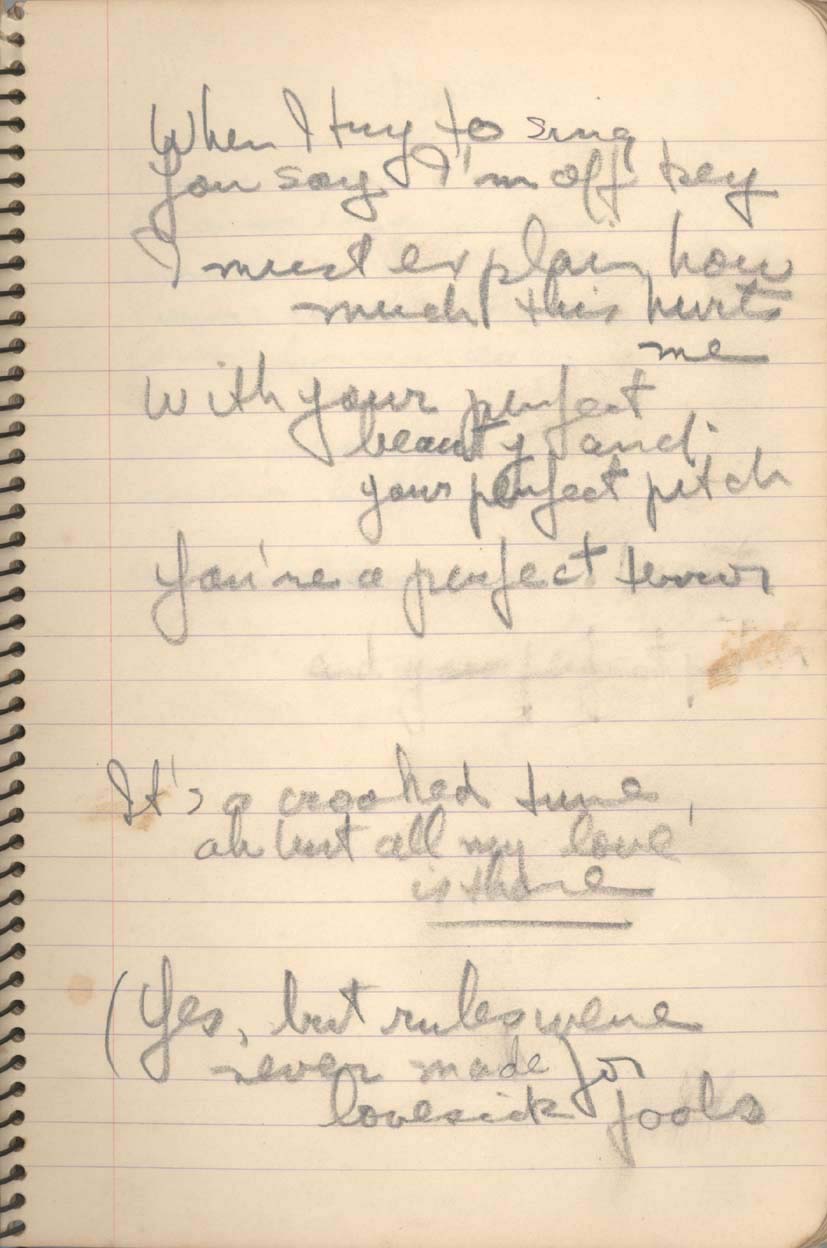 When I try to sing
you say I'm off key
I must explain how
much this hurts
me
With your perfect
beauty and
your perfect pitch
You're a perfect terror
and your perfect
It's a crooked tune,
ah but all my love
is there
(Yes, but rules were
never made for
lovesick fools